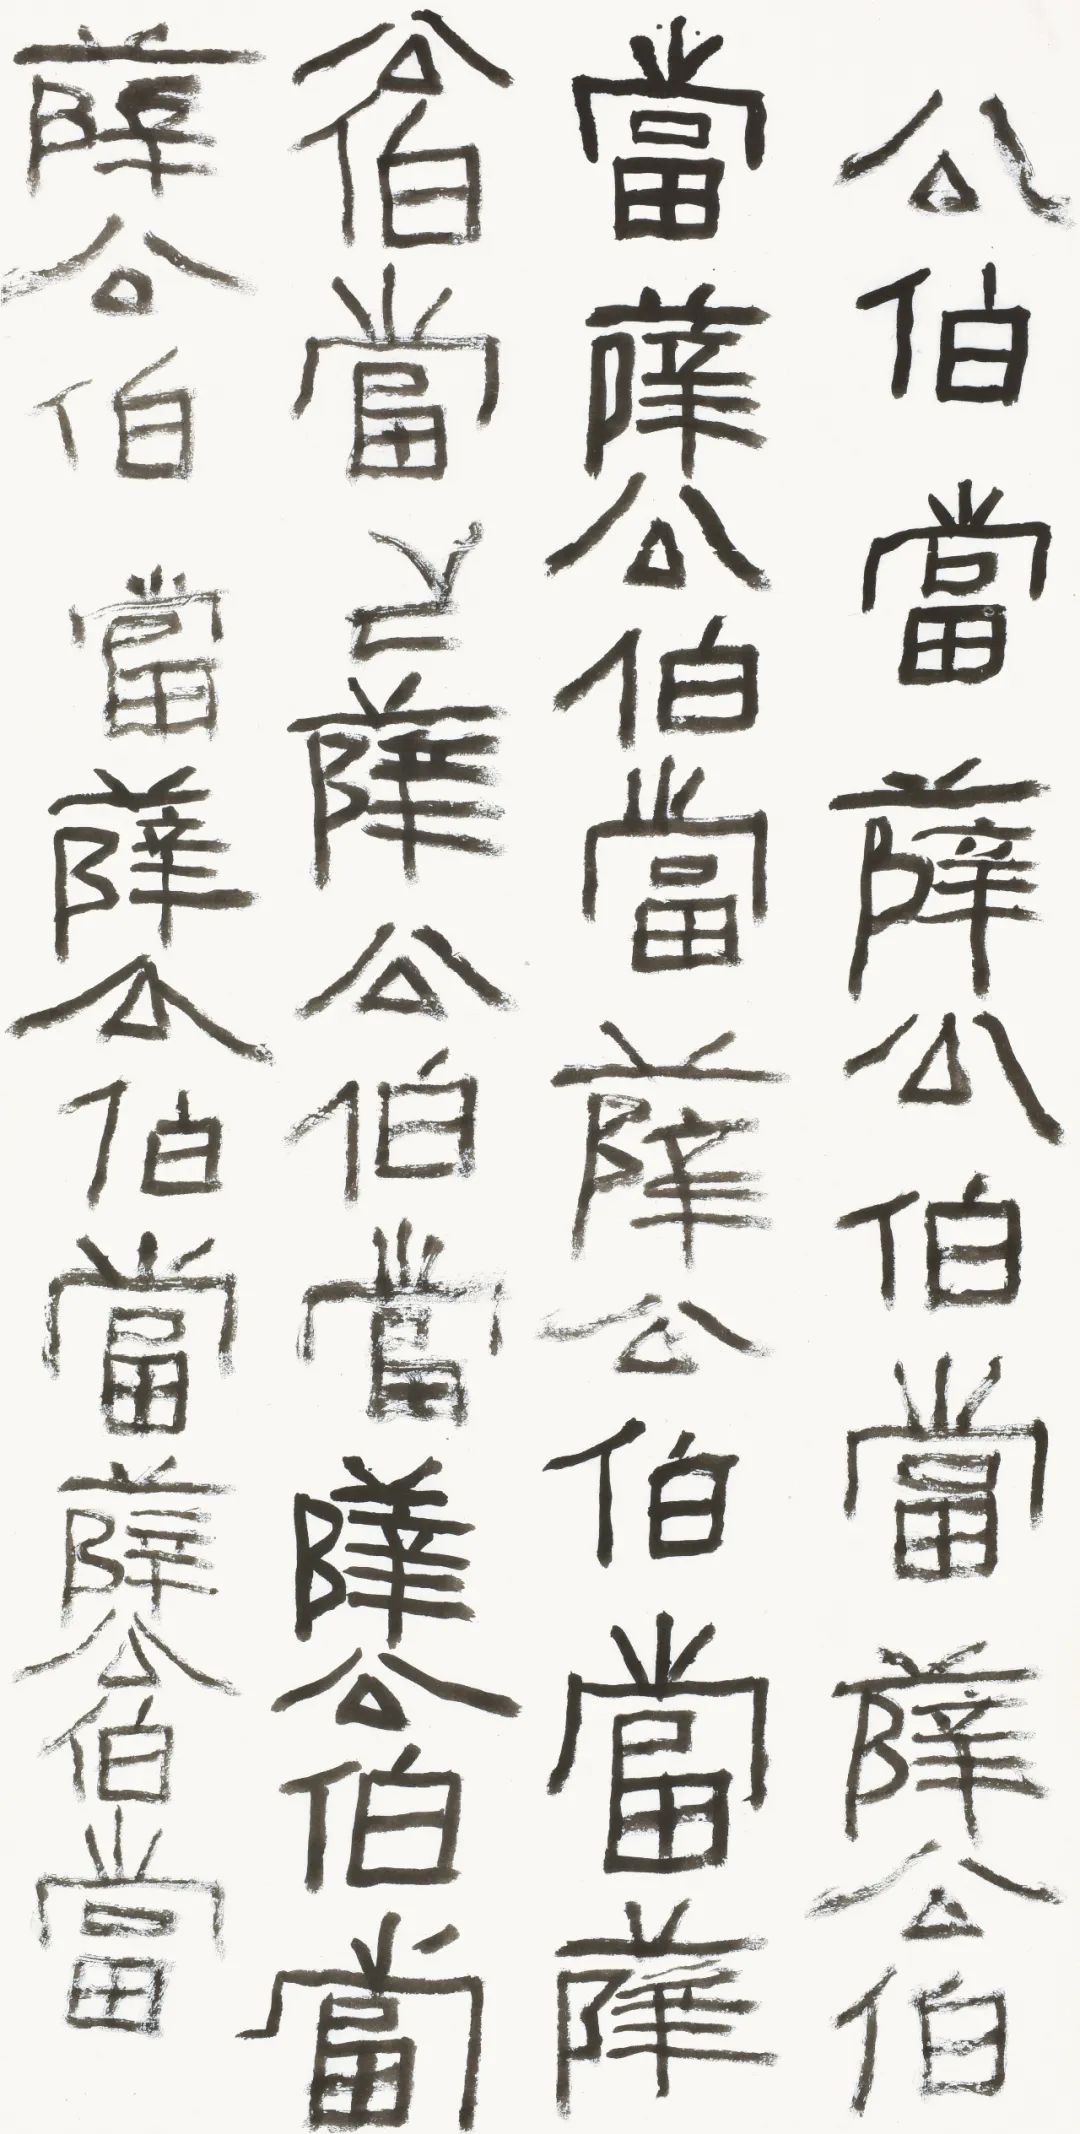 公伯當薛公伯當薛公伯
當薛公伯當薛公伯當薛
公伯當薛公伯當薛公伯當
薛公伯當薛公伯當薛公伯當